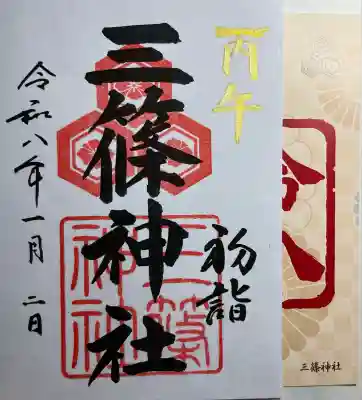 丙午
初詣
三篠神社
令和八年一月二日
三篠神社
令八
三篠神社